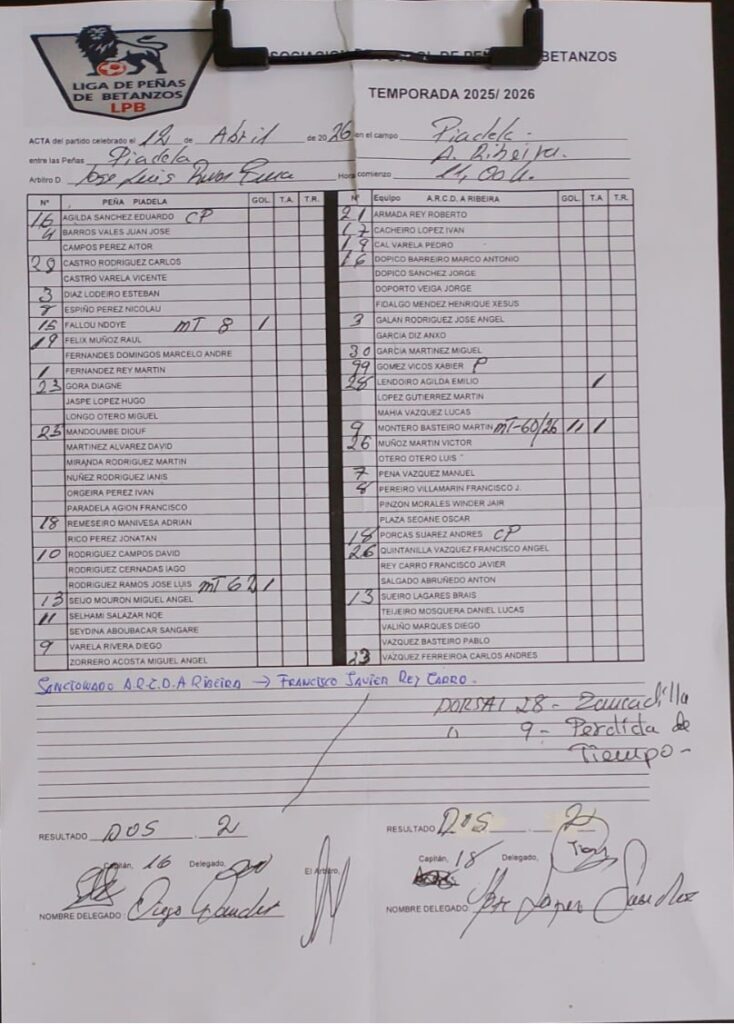 LIGA DE PEÑAS
DE BETANZOS
LPB
BETANZOS
TEMPORADA 2025/ 2026
ACTA del partido celebrado el 12 de Abril de 2026 en el campo Piadela
entre las Peñas Piadela A. Ribeira.
Arbitro D. Jose Luis Hora comienzo 11,00 h.
Nº PEÑA PIADELA GOL. T.A. T.R.
16 AGILDA SANCHEZ EDUARDO CP
4 BARROS VALES JUAN JOSE
CAMPOS PEREZ AITOR
CASTRO RODRIGUEZ CARLOS
CASTRO VARELA VICENTE
3 DIAZ LODEIRO ESTEBAN
ESPIÑO PEREZ NICOLAU
15 FALLOU NDOYE MT 8 1
19 FELIX MUÑOZ RAUL
FERNANDES DOMINGOS MARCELO ANDRE
1 FERNANDEZ REY MARTIN
23 GORA DIAGNE
JASPE LOPEZ HUGO
LONGO OTERO MIGUEL
25 MANDOUMBE DIOUF
MARTINEZ ALVAREZ DAVID
MIRANDA RODRIGUEZ MARTIN
NUÑEZ RODRIGUEZ IANIS
ORGEIRA PEREZ IVAN
PARADELA AGION FRANCISCO
18 REMESEIRO MANIVESA ADRIAN
RICO PEREZ JONATAN
10 RODRIGUEZ CAMPOS DAVID
RODRIGUEZ CERNADAS IAGO
RODRIGUEZ RAMOS JOSE LUIS MT 62 1
13 SEIJO MOURON MIGUEL ANGEL
11 SELHAMI SALAZAR NOE
SEYDINA ABOUBACAR SANGARE
9 VARELA RIVERA DIEGO
ZORRERO ACOSTA MIGUEL ANGEL
Nº Equipo A.R.C.D. A RIBEIRA GOL. T.A. T.R.
21 ARMADA REY ROBERTO
17 CACHEIRO LOPEZ IVAN
19 CAL VARELA PEDRO
16 DOPICO BARREIRO MARCO ANTONIO
DOPICO SANCHEZ JORGE
DOPORTO VEIGA JORGE
FIDALGO MENDEZ HENRIQUE XESUS
3 GALAN RODRIGUEZ JOSE ANGEL
GARCIA DIZ ANXO
30 GARCIA MARTINEZ MIGUEL
99 GOMEZ VICOS XABIER P
28 LENDOIRO AGILDA EMILIO 1
LOPEZ GUTIERREZ MARTIN
MAHIA VAZQUEZ LUCAS
9 MONTERO BASTEIRO MARTIN MT-60/26 11 1
26 MUÑOZ MARTIN VICTOR
OTERO OTERO LUIS
7 PENA VAZQUEZ MANUEL
8 PEREIRO VILLAMARIN FRANCISCO J.
PINZON MORALES WINDER JAIR
PLAZA SEOANE OSCAR
18 PORCAS SUAREZ ANDRES CP
26 QUINTANILLA VAZQUEZ FRANCISCO ANGEL
REY CARRO FRANCISCO JAVIER
SALGADO ABRUÑEDO ANTON
13 SUEIRO LAGARES BRAIS
TEIJEIRO MOSQUERA DANIEL LUCAS
VALIÑO MARQUES DIEGO
VAZQUEZ BASTEIRO PABLO
23 VAZQUEZ FERREIROA CARLOS ANDRES
SANCIONADO A.R.C.D. A RIBEIRA → FRANCISCO JAVIER REY CARRO.
DORSAL 28 - Zancadilla
" 9 - Perdida de
Tiempo -
RESULTADO DOS . 2
Capitán, 16 Delegado,
NOMBRE DELEGADO: Diego
El Arbitro,
RESULTADO DOS . 2
Capitán, 18 Delegado,
NOMBRE DELEGADO: Lopez Sanchez